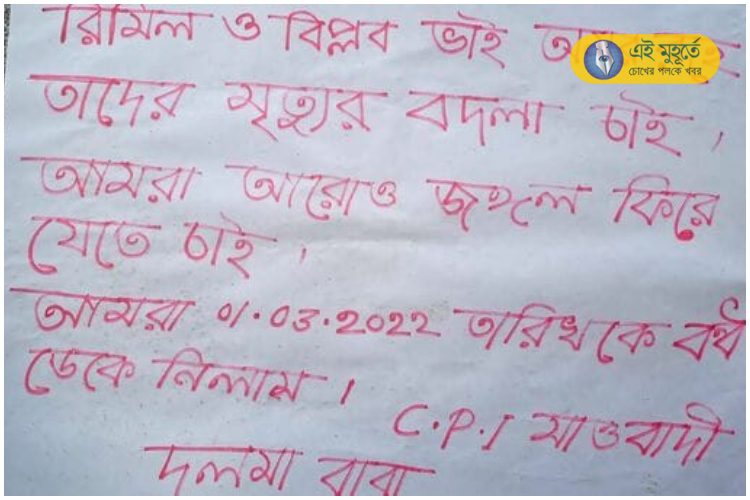 রিমিল ও বিপ্লব ভাই
তাদের মৃত্যুর বদলা চাই,
আমরা আরোও জঙ্গল ফিরে
যেতে চাই,
আমরা 01.03.2022 তারিখকে বর্ধ
ডেকে নিলাম।
C.P.I মাওবাদী
দলমা বাবা
এই মুহূর্তে
চোখের পলকে খবর